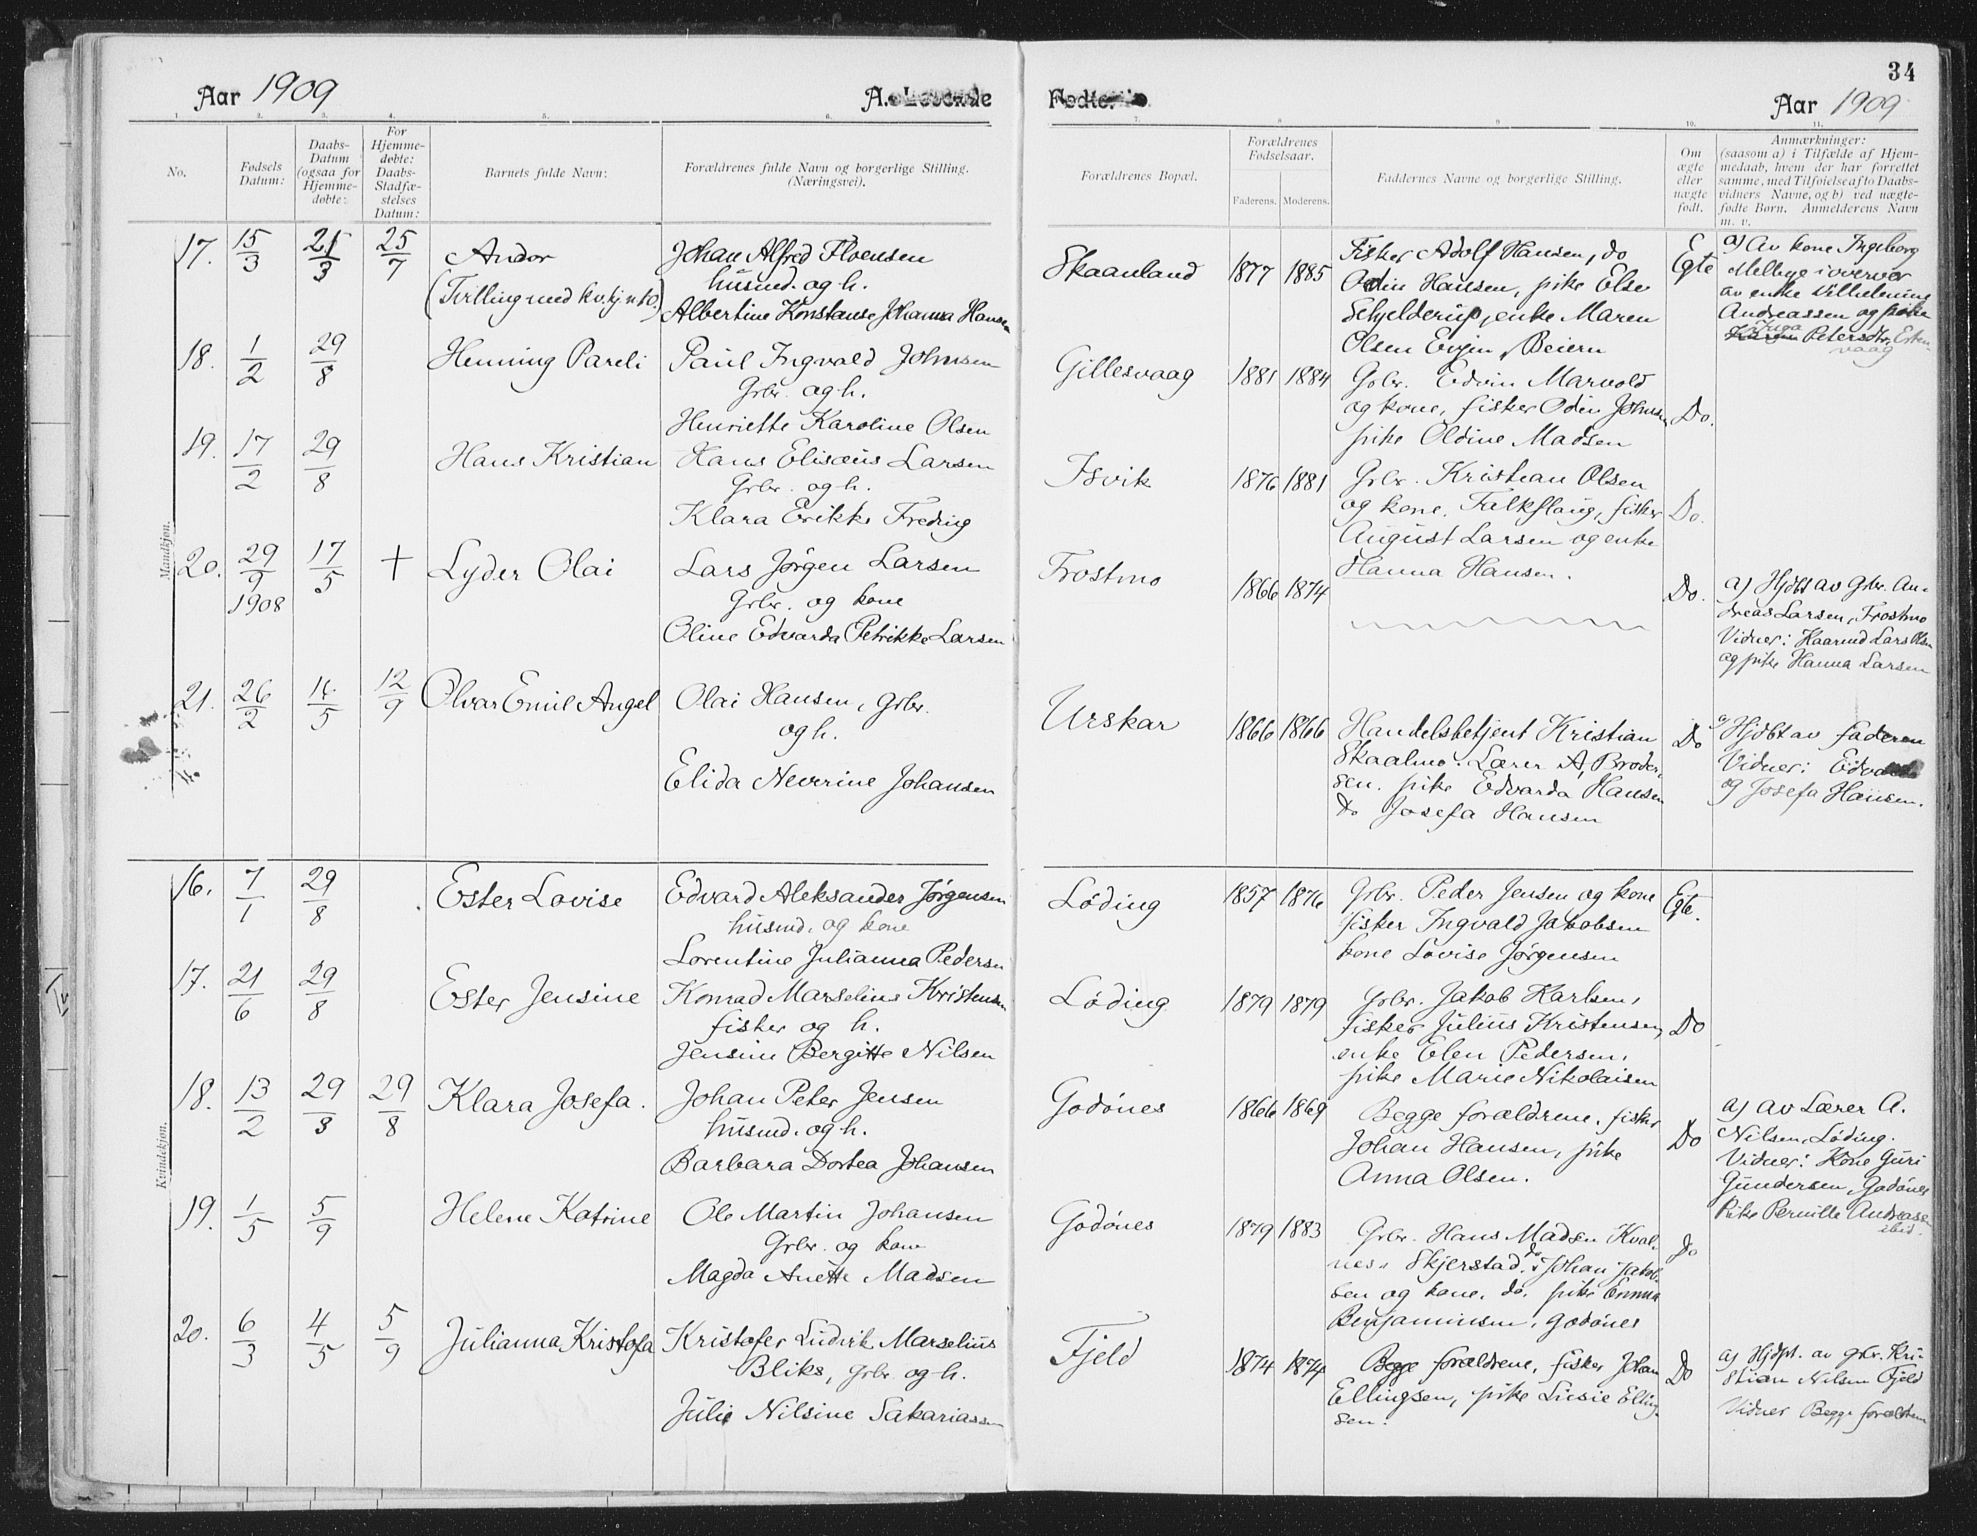 34
Aar 1909
A. Levende
Fødte.
Aar 1909
1. 2. 3. 4. 5. 6. 7. 8. 9. 10. 11.
No.
Fødsels
Datum:
Daabs-
Datum
(ogsaa for
Hjemme-
døbte:
For
Hjemme-
døbte:
Daabs-
Stadfæ-
stelses
Datum:
Barnets fulde Navn:
Forældrenes fulde Navn og borgerlige Stilling.
(Næringsvei).
Forældrenes Bopæl.
Forældrenes
Fødselsaar.
Faderens. Moderens.
Faddernes Navne og borgerlige Stilling.
Om
ægte
eller
uægte
født.
Anmærkninger:
(saasom a) i Tilfælde af Hjem-
medaab, hvem der har forrettet
samme, med Tilføielse af to Daabs-
vidners Navne, og b) ved uægte-
fødte Børn. Anmelderens Navn
m. v.
Mandkjøn.
17. 15/3 21/3 25/7
Andor
(Tvilling med kv.kj. n 10.)
Johan Alfred
husmd. og h.
Albertine Konstanse Johanna Hansen
Skaanland
1877 1885
Fisker Adolf Hansen, do
Odin Hansen, pike Else
Schjelderup, enke Maren
Olsen Evjen, Beiern
Egte
a) Av kone Ingeborg
Melbye i overvær
av enke Vilhelmine
Andreassen og pike
Petersdtr,
18. 1/2 29/8
Henning Pareli
Paul Ingvald Johnsen
Grbr. og h.
Henriette Karoline Olsen
Gillesvaag
1881 1884
Grbr. Edvin Marvold
og kone, fisker Odin Johnsen
pike Oldine Madsen
Do.
19. 17/2 29/8
Hans Kristian
Hans Elisæus Larsen
Grbr. og h.
Klara Erikke Fredrig
Isvik
1876 1881
Grbr. Kristian Olsen
og kone, Falkflaug, fisker
August Larsen og enke
Hanna Hansen.
Do.
20. 29/9 1908 17/5 +
Lyder Olai
Lars Jørgen Larsen
Grbr. og kone
Oline Edvarda Petrikke Larsen
Frostmo
1866 1874
Do.
a) Hjdbt av Grbr. An-
dreas Larsen, Frostmo
Vidner: Kaarmd Lars Olsen
og pike Hanna Larsen
21. 26/2 16/5 12/9
Olvar Emil Angel
Olai Hansen, Grbr.
og h.
Elida Neverine Johansen
Urskar
1866 1866
Handelsbetjent Kristian
Skaalmo. Lærer A, Broder-
sen. pike Edvarda Hansen
do Josefa Hansen
Do
a) Hjdbt av faderen
Vidner: Edvarda
og Josefa Hansen.
Kvindekjøn.
16. 7/1 29/8
Ester Lovise
Edvard Aleksander Jørgensen
husmd. og kone
Lorentine Julianna Pedersen
Løding
1857 1876
Grbr. Peder Jensen og kone
fisker Ingvald Jakobsen
kone Lovise Jørgensen
Egte.
17. 21/6 29/8
Ester Jensine
Konrad Marselius Kristensen
fisker og h.
Jensine Bergitte Nilsen
Løding
1879 1879
Grbr. Jakob Karlsen,
fisker Julius Kristensen,
enke Elen Pedersen,
pike Marie Nikolaisen
Do
18. 13/2 29/3 29/8
Klara Josefa.
Johan Peter Jensen
husmd. og h.
Barbara Dortea Johansen
Godønes
1866 1869
Begge forældrene, fisker
Johan Hansen, pike
Anna Olsen.
Do
a) av Lærer A.
Nilsen, Løding.
Vidner: Kone Guri
Gundersen, Godønes
Pike Pernille Andreassen
ibid.
19. 1/5 5/9
Helene Katrine
Ole Martin Johansen
Grbr. og kone
Magda Anette Madsen
Godønes
1879 1883
Grbr. Hans Madsen Kval-
nes, Skjerstad, do Johan Jakob-
sen og kone, do. pike Emma
Benjaminsen, Godønes
Do
20. 6/3 4/5 5/9
Julianna Kristofa
Kristofer Ludvik Marselius
Bliks, Grbr. og h.
Julie Nilsine Sakariassen
Fjeld
1874 1874
Begge forældrene, fisker Johan
Ellingsen, pike Lusie Elling-
sen.
Do
a) Hjdpt. av grbr. Kri-
stian Nilsen Fjeld
Vidner Begge forældrene